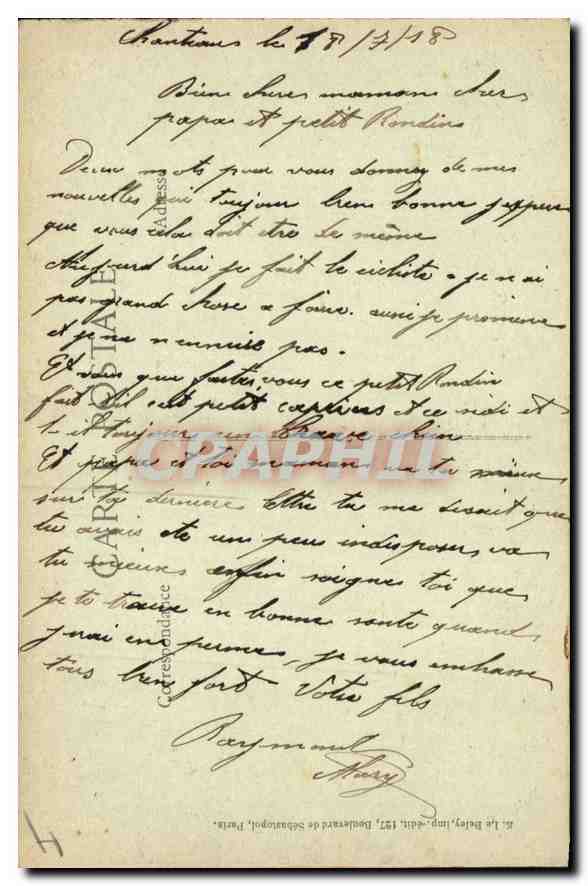 le 18/7/18
Bien chere maman cher
papa et petit Rondin
Deux mots pour vous donner de mes
nouvelles toujour bien bonne j'espere
que vous cela doit etre de même
Aujourd'hui je fait le cicliste. je n'ai
pas grand chose a faire. aussi je promene
et je ne m'ennuie pas.
Et vous que faites vous ce petit Rondin
fait il ces petit caprices et ce
est il toujour un brave chien
Et papa et toi maman va tu mieux
sur ta derniere lettre tu me disait que
tu avais ete un peu indisposer va
tu mieux enfin soignes toi que
je te trouve en bonne sante quand
j'irai en perme, je vous embrasse
tous bien fort Votre fils
Raymond
Mary
CARTE POSTALE
Correspondance
Adresse
E. Le Deley, imp.-édit., 127, Boulevard de Sébastopol, Paris.
4
CPARPHIL